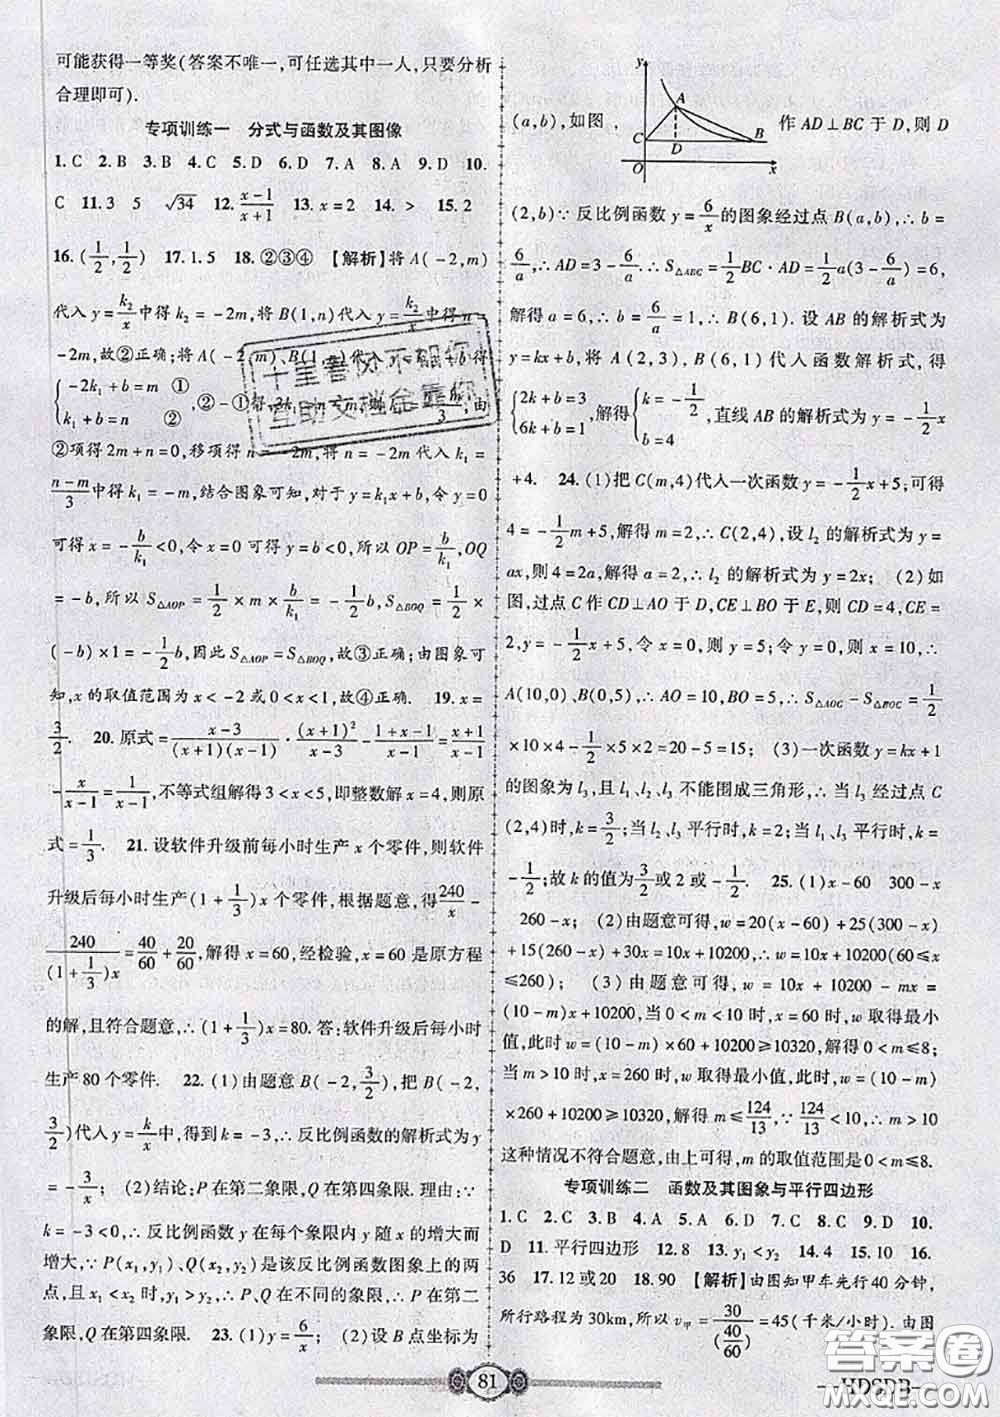 可能获得一等奖(答案不唯一,可任选其中一人,只要分析
合理即可).
专项训练一 分式与函数及其图像
1.C 2.B 3.B 4.C 5.D 6.D 7.A 8.A 9.D 10.
C 11.3 5 √34 12.(x-1)/(x+1) 13.x=2 14.> 15.2
16.(1/2,1/2) 17.1.5 18.②③④ 【解析】将A(-2,m)
代入y=k₂/x中得k₂=-2m,将B(1,n)代入y=k₂/x中得n=
-2m,故②正确;将A(-2,m)、B(1,n)代入y=k₁x+b得
{-2k₁+b=m ① k₁+b=n ②,②-①得3k₁=n-m,k₁=(n-m)/3,由
②项得2m+n=0,移项得n=-2m,将n=-2m代入k₁=
(n-m)/3中得k₁=-m,结合图象可知,对于y=k₁x+b,令y=0
可得x=-b/k₁<0,令x=0可得y=b<0,所以OP=b/k₁,OQ
=-b,所以S△AOP=1/2×m×b/k₁=-1/2b,S△BOQ=1/2×
(-b)×1=-1/2b,因此S△AOP=S△BOQ,故③正确;由图象可
知,x的取值范围为x<-2或0<x<1,故④正确. 19.x=
3/2. 20.原式=(x-3)/((x+1)(x-1))·(x+1)²/(x-3)-(1+x-1)/(x-1)=(x+1)/(x-1)
-x/(x-1)=1/(x-1),不等式组解得3<x<5,即整数解x=4,则原
式=1/3. 21.设软件升级前每小时生产x个零件,则软件
升级后每小时生产(1+1/3)x个零件,根据题意,得240/x-
240/((1+1/3)x)=40/60+20/60,解得x=60,经检验,x=60是原方程
的解,且符合题意,∴(1+1/3)x=80.答:软件升级后每小时
生产80个零件. 22.(1)由题意B(-2,3/2),把B(-2,
3/2)代入y=k/x中,得到k=-3,∴反比例函数的解析式为y
=-3/x; (2)结论:P在第二象限,Q在第四象限.理由:∵
k=-3<0,∴反比例函数y在每个象限内y随x的增大而
增大,∵P(x₁,y₁)、Q(x₂,y₂)是该反比例函数图象上的两
点,且x₁<x₂时,y₁>y₂,∴P、Q在不同的象限,∴P在第二
象限,Q在第四象限. 23.(1)y=6/x; (2)设B点坐标为
(a,b),如图, 作AD⊥BC于D,则D
y
A
C
B
D
O
x
(2,b)∵反比例函数y=6/x的图象经过点B(a,b),∴b=
6/a,∴AD=3-6/a.∴S△ABC=1/2BC·AD=1/2a(3-6/a)=6,
解得a=6,∴b=6/a=1,∴B(6,1).设AB的解析式为
y=kx+b,将A(2,3),B(6,1)代入函数解析式,得
{2k+b=3 6k+b=1,解得{k=-1/2 b=4,直线AB的解析式为y=-1/2x
+4. 24.(1)把C(m,4)代入一次函数y=-1/2x+5,可得
4=-1/2m+5,解得m=2,∴C(2,4),设l₂的解析式为y=
ax,则4=2a,解得a=2,∴l₂的解析式为y=2x; (2)如
图,过点C作CD⊥AO于D,CE⊥BO于E,则CD=4,CE=
2,y=-1/2x+5,令x=0,则y=5;令y=0,则x=10,∴
A(10,0),B(0,5),∴AO=10,BO=5,∴S△AOC-S△BOC=1/2
×10×4-1/2×5×2=20-5=15; (3)一次函数y=kx+1
的图象为l₃,且l₁、l₂、l₃不能围成三角形,∴当l₃经过点C
(2,4)时,k=3/2;当l₂、l₃平行时,k=2;当l₁、l₃平行时,k=
-1/2;故k的值为3/2或2或-1/2. 25.(1)x-60 300-x
260-x; (2)由题意可得,w=20(x-60)+25(300-x)
+15(260-x)+30x=10x+10200,∴w=10x+10200(60≤x
≤260); (3)由题意可得,w=10x+10200-mx=
(10-m)x+10200,当0<m<10时,x=60时,w取得最小
值,此时,w=(10-m)×60+10200≥10320,解得0<m≤8;
当m>10时,x=260时,w取得最小值,此时,w=(10-m)
×260+10200≥10320,解得m≤124/13,∵124/13<10,∴m>10
这种情况不符合题意,由上可得,m的取值范围是0<m≤8.
专项训练二 函数及其图象与平行四边形
1.C 2.C 3.B 4.A 5.A 6.D 7.C 8.C 9.D 10.
D 11.平行四边形 12.8 13.y₁<y₂ 14.4 15.10 16.
36 17.12或20 18.90 【解析】由图知甲车先行40分钟,
所行路程为30km,所以v甲=30/(40/60)=45(千米/小时).由图
81
HDSDB
答案圈